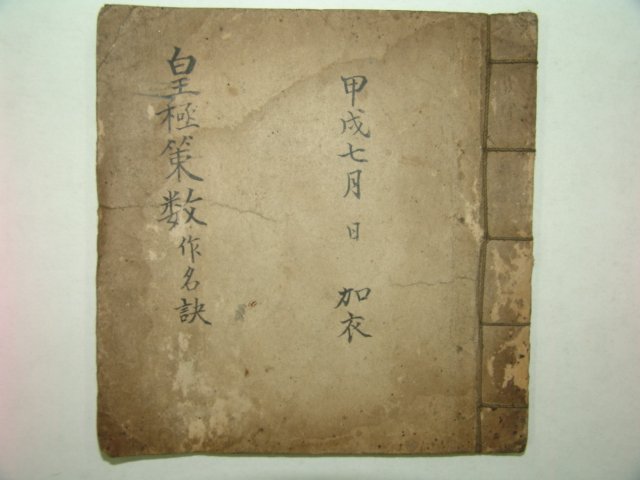 甲戌七月 日 加衣
皇極策数作名訣